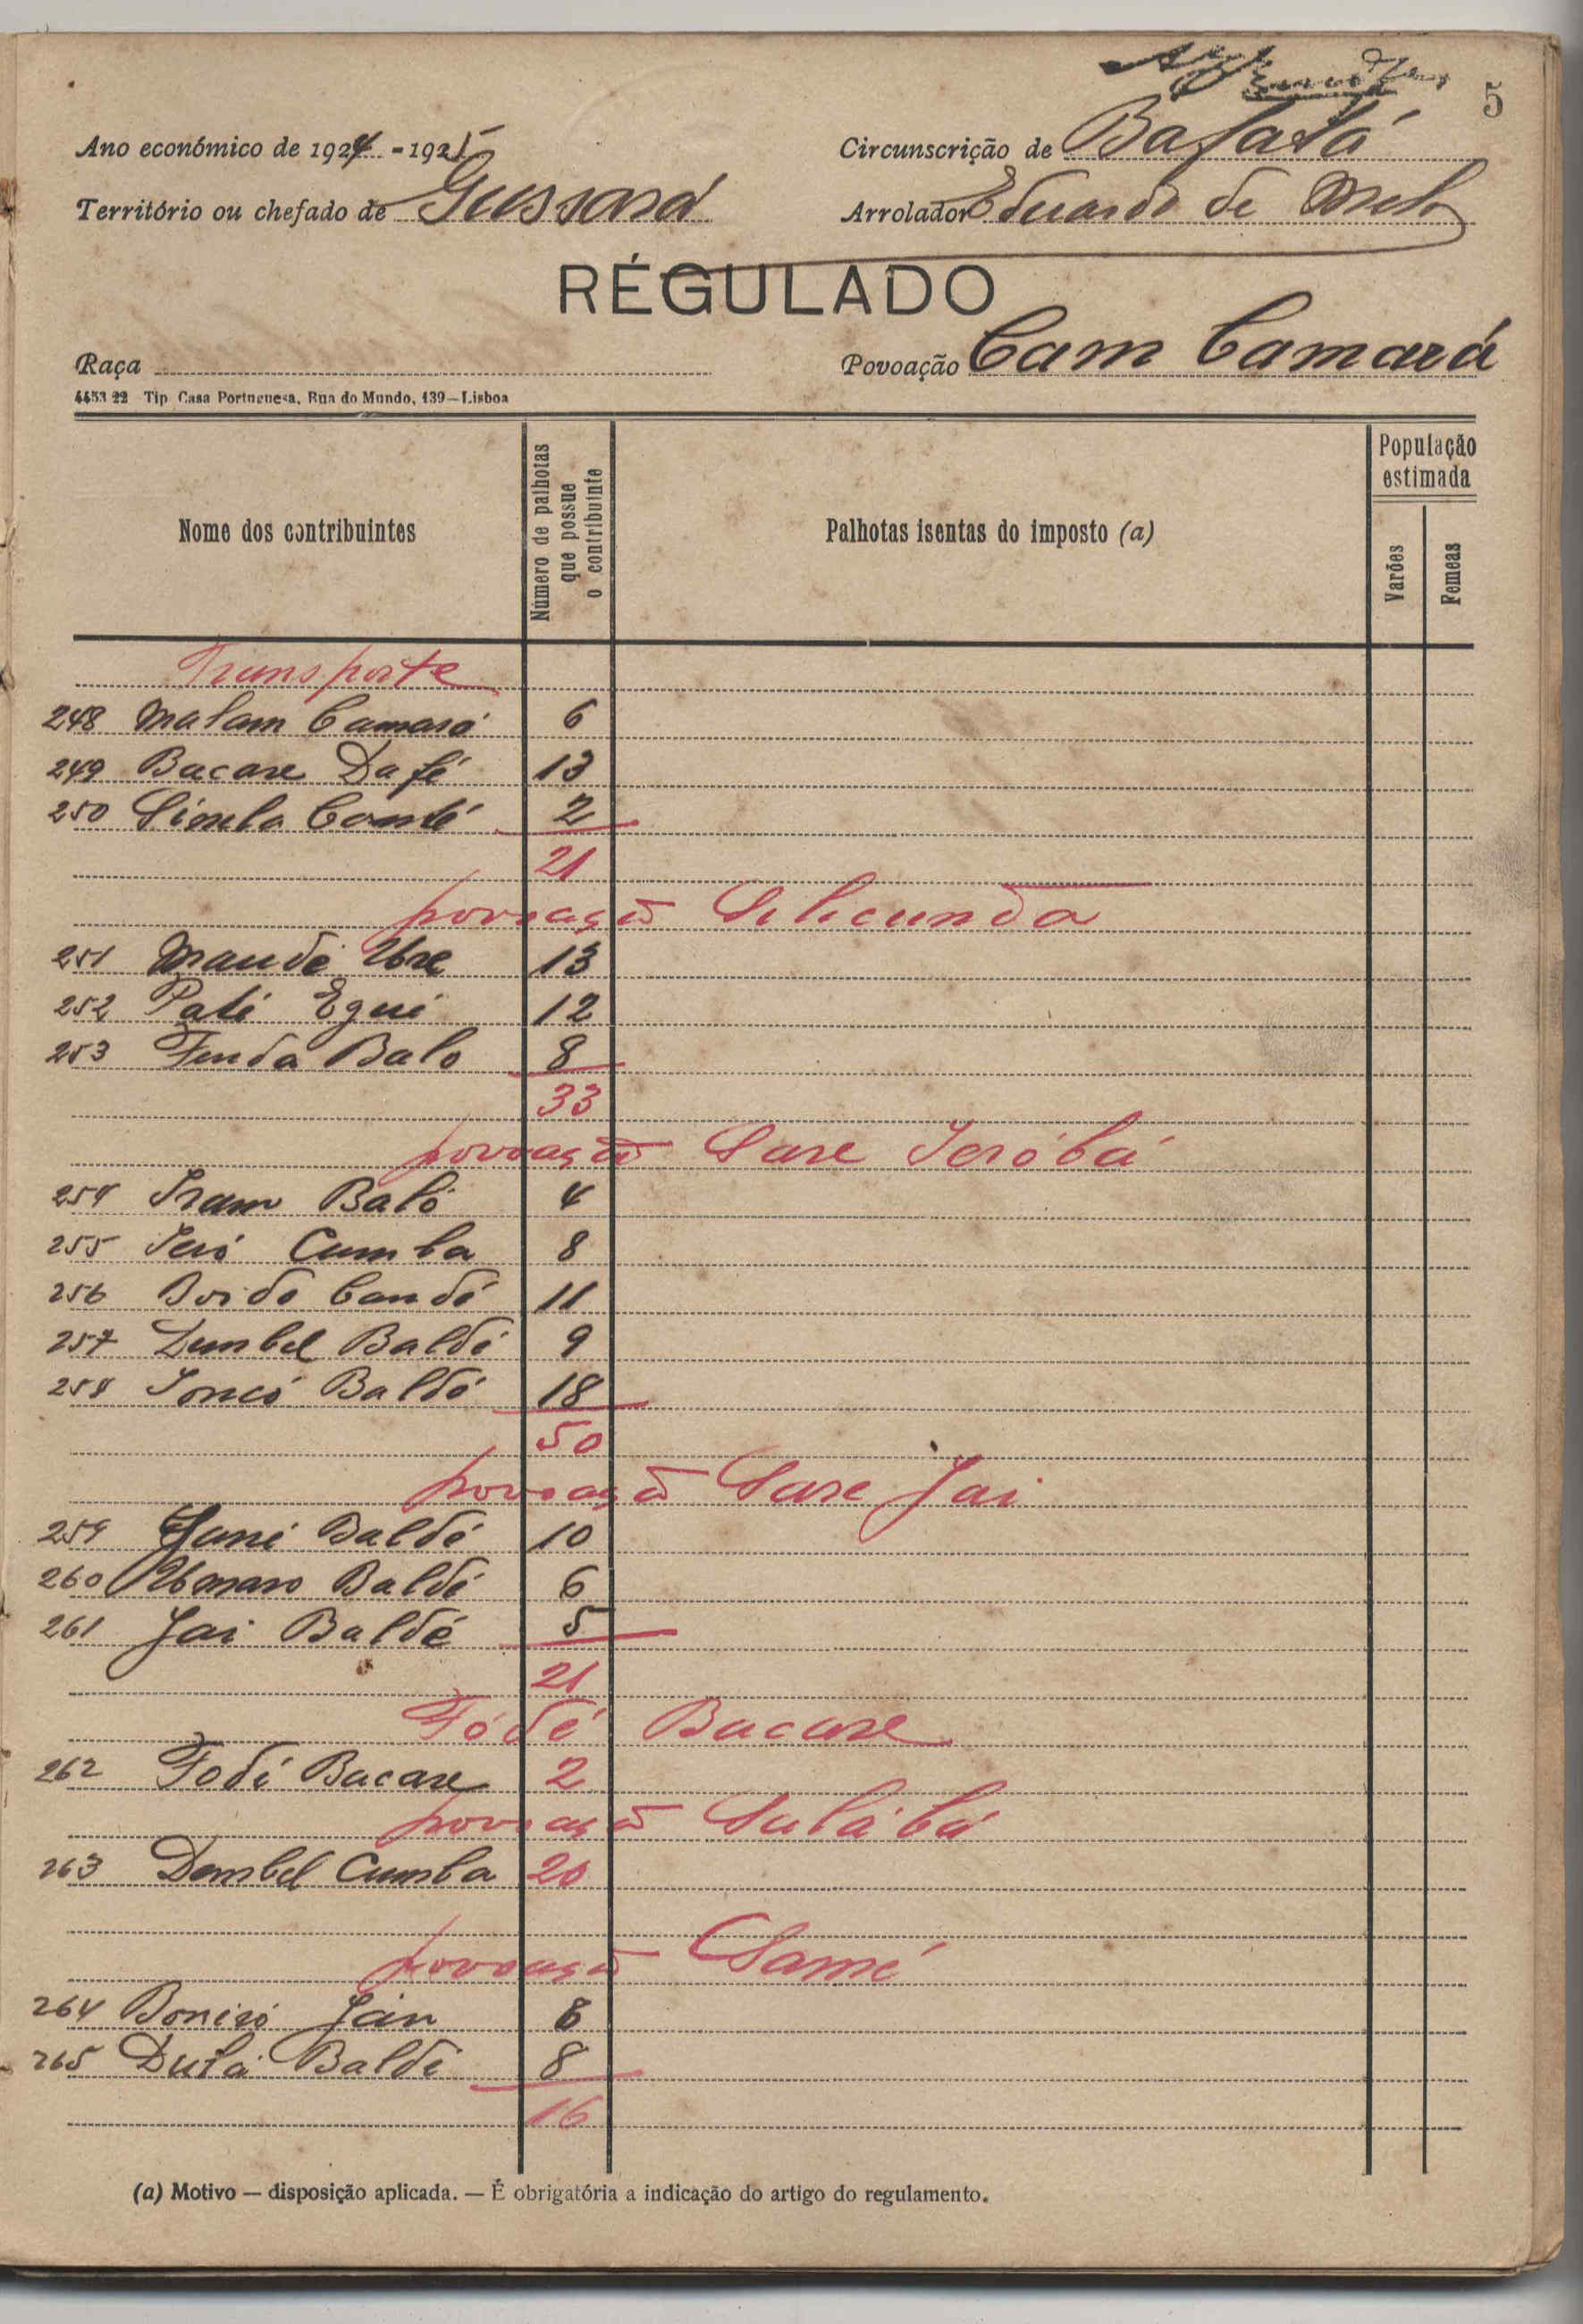 5
Ano económico de 1924 - 1925
Circunscrição de Bafatá
Território ou chefado de Gussará
Arrolador Eduardo de Melo
RÉGULADO
Raça
Povoação Cam Camará
4453 22 Tip Casa Portuguesa, Rua do Mundo, 139—Lisboa
Nome dos contribuintes
Número de palhotas que possue o contribuinte
Palhotas isentas do imposto (a)
População estimada
Varões
Femeas
Transporte
248 Malam Camará 6
249 Bacare Dafé 13
250 2
21
povoação Silicunda
251 Maudé Ure 13
252 Paté Egué 12
253 Fenda Balo 8
33
povoação Sare Jeróbá
254 Iram Baló 4
255 Jeró Cumba 8
256 Boido Candé 11
257 Dembel Baldé 9
258 Joncó Baldé 18
50
povoação Sare Jai
259 Juné Baldé 10
260 Umaro Baldé 6
261 Jai Baldé 5
21
Fódé Bacare
262 Fodé Bacare 2
povoação Sulábá
263 Dembel Cumba 20
povoação Samé
264 Boneiró Jau 8
265 Dulá Baldé 8
16
(a) Motivo — disposição aplicada. — É obrigatória a indicação do artigo do regulamento.